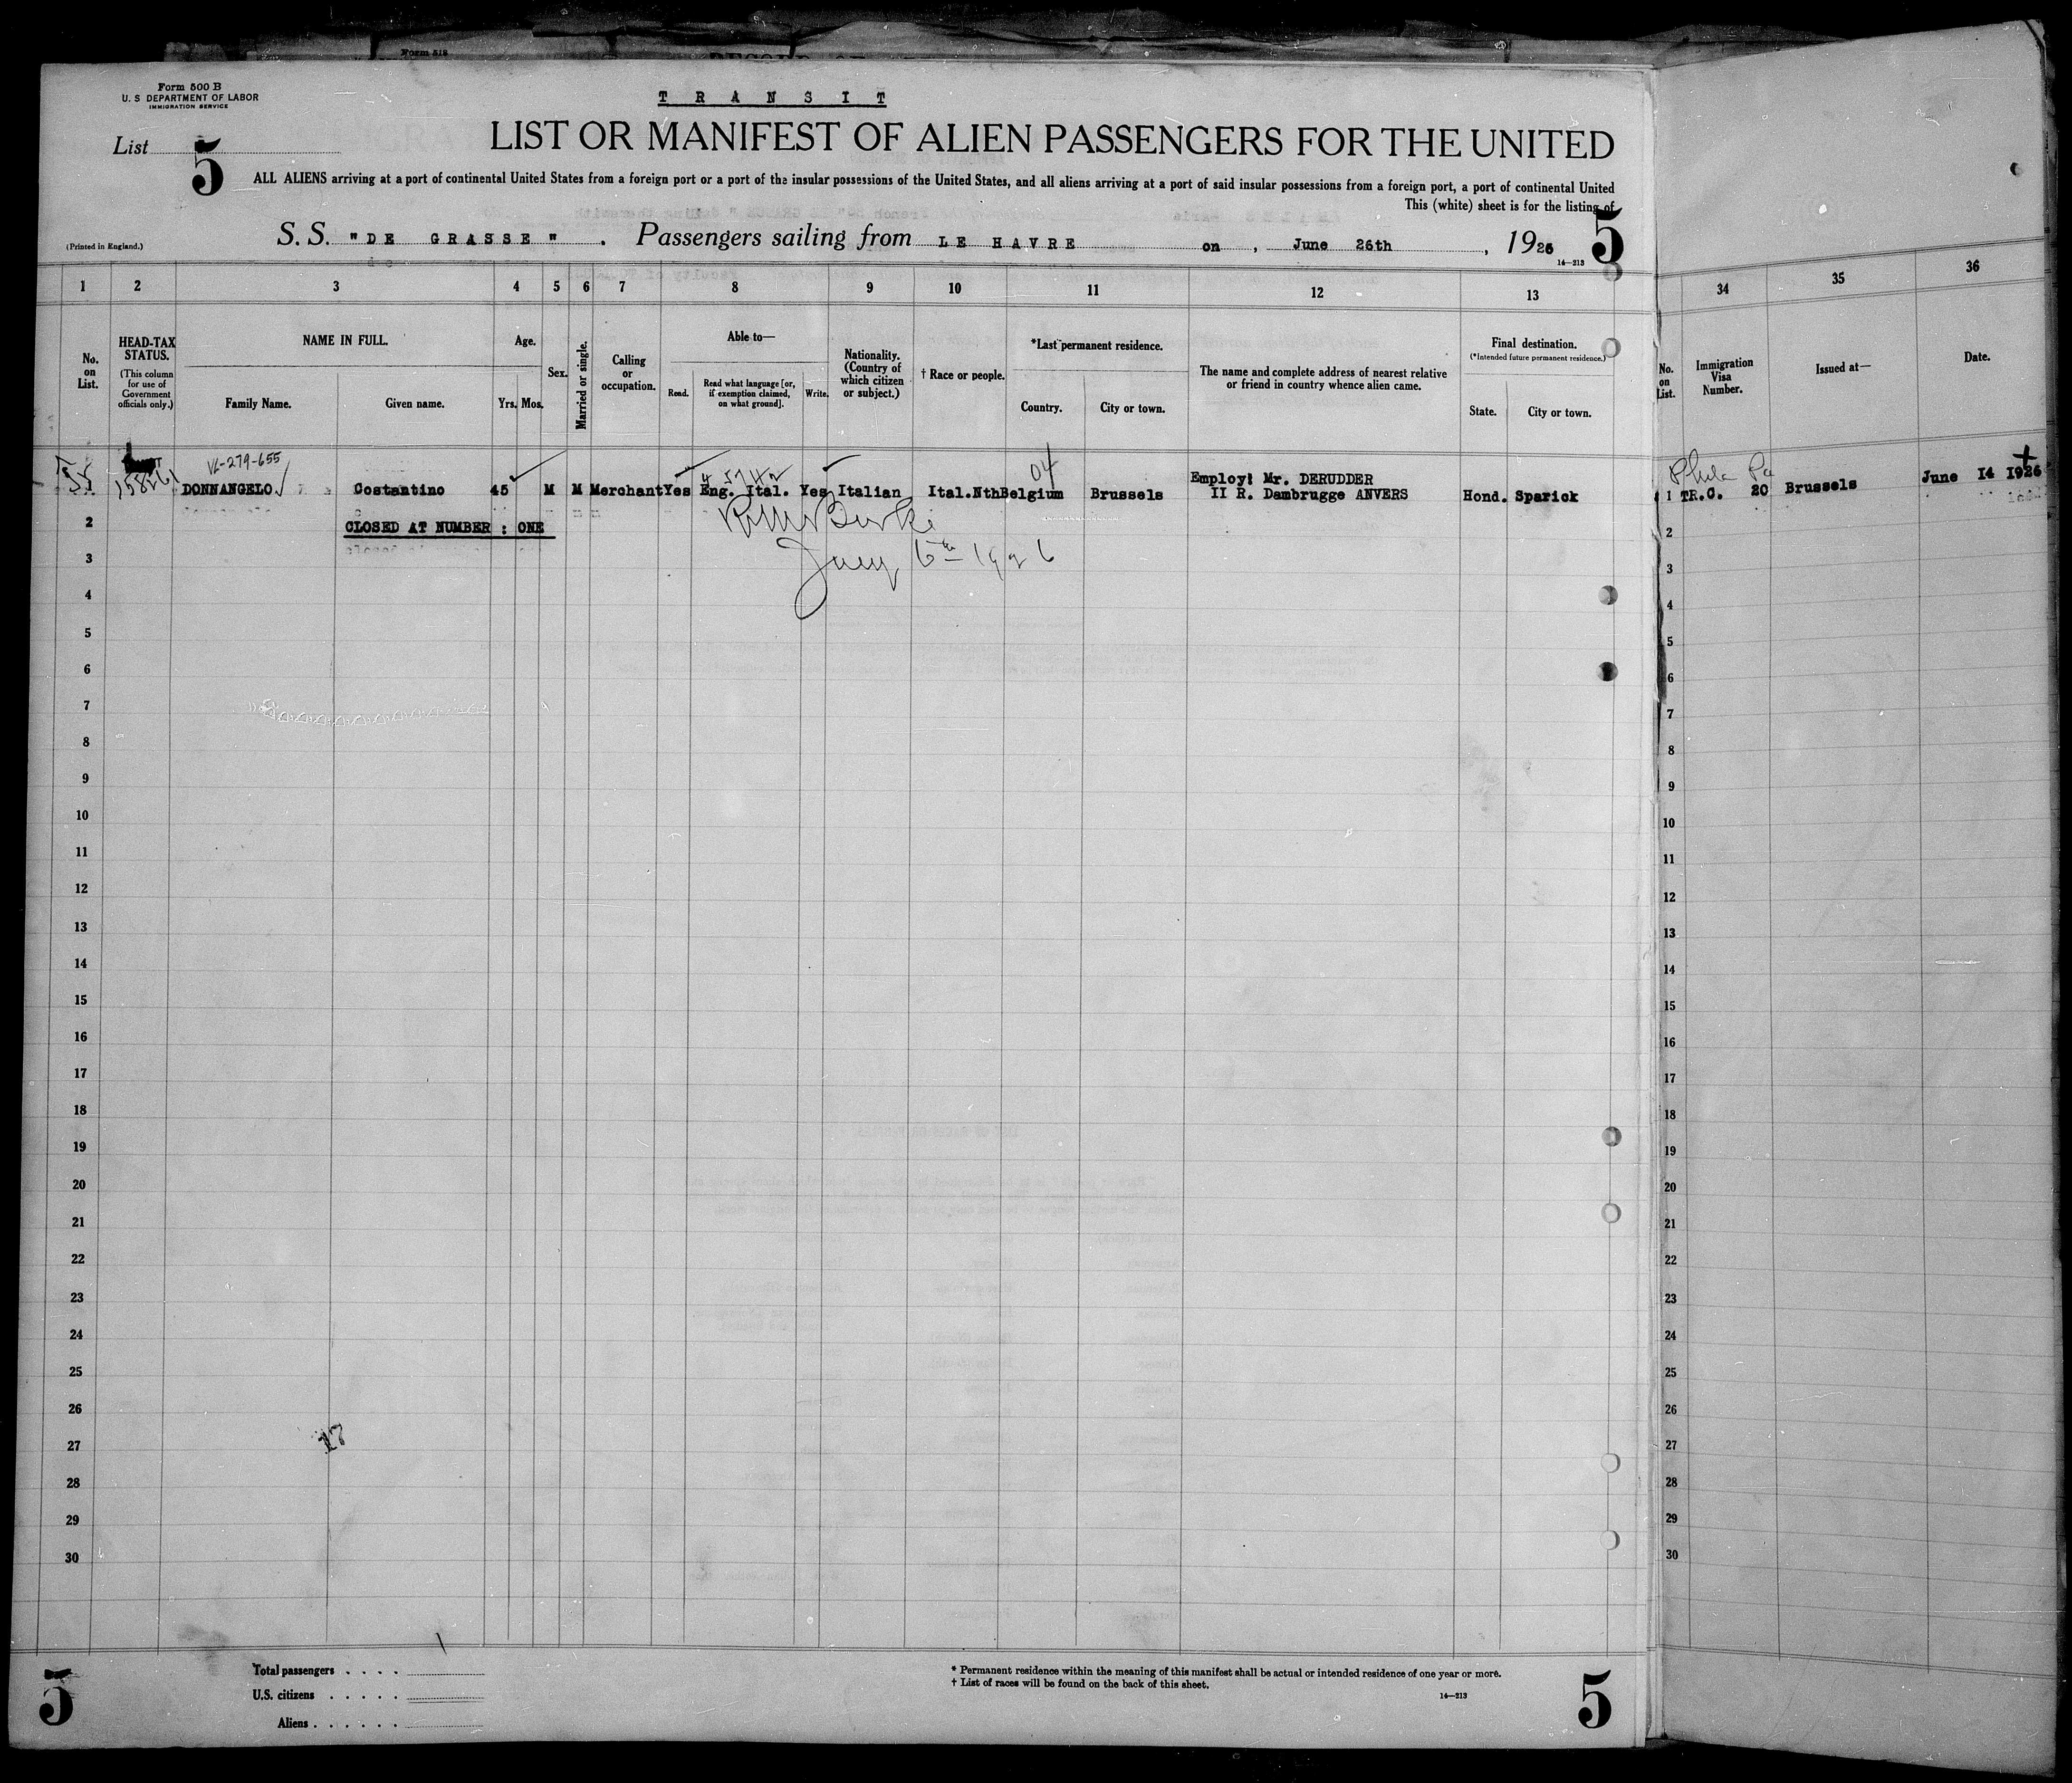 Form 500 B
U. S DEPARTMENT OF LABOR
IMMIGRATION SERVICE
T R A N S I T
LIST OR MANIFEST OF ALIEN PASSENGERS FOR THE UNITED
List 5
ALL ALIENS arriving at a port of continental United States from a foreign port or a port of the insular possessions of the United States, and all aliens arriving at a port of said insular possessions from a foreign port, a port of continental United
This (white) sheet is for the listing of
5
(Printed in England.)
S. S. "DE GRASSE" . Passengers sailing from LE HAVRE on , June 26th , 1926
14—213
1 2 3 4 5 6 7 8 9 10 11 12 13 34 35 36
No. on List.
HEAD-TAX STATUS.
(This column for use of Government officials only.)
NAME IN FULL.
Family Name. Given name.
Age.
Yrs. Mos.
Sex.
Married or single.
Calling or occupation.
Able to—
Read. Read what language [or, if exemption claimed, on what ground]. Write.
Nationality. (Country of which citizen or subject.)
† Race or people.
*Last permanent residence.
Country. City or town.
The name and complete address of nearest relative or friend in country whence alien came.
Final destination.
(*Intended future permanent residence.)
State. City or town.
No. on List.
Immigration Visa Number.
Issued at—
Date.
VL-279-655
04
Phila Pa
158261 DONNANGELO Costantino 45 M M Merchant Yes Eng. Ital. Yes Italian Ital.Nth Belgium Brussels
Employ: Mr. DERUDDER
II R. Dambrugge ANVERS
Hond. Sparick
1 TR.C. 20 Brussels June 14 1926
CLOSED AT NUMBER : ONE
July 6th 1926
2 2
3 3
4 4
5 5
6 6
7 7
8 8
9 9
10 10
11 11
12 12
13 13
14 14
15 15
16 16
17 17
18 18
19 19
20 20
21 21
22 22
23 23
24 24
25 25
26 26
27 27
28 28
29 29
30 30
5
Total passengers . . . .
U.S. citizens . . . . .
Aliens . . . . . .
* Permanent residence within the meaning of this manifest shall be actual or intended residence of one year or more.
† List of races will be found on the back of this sheet.
14—213
5